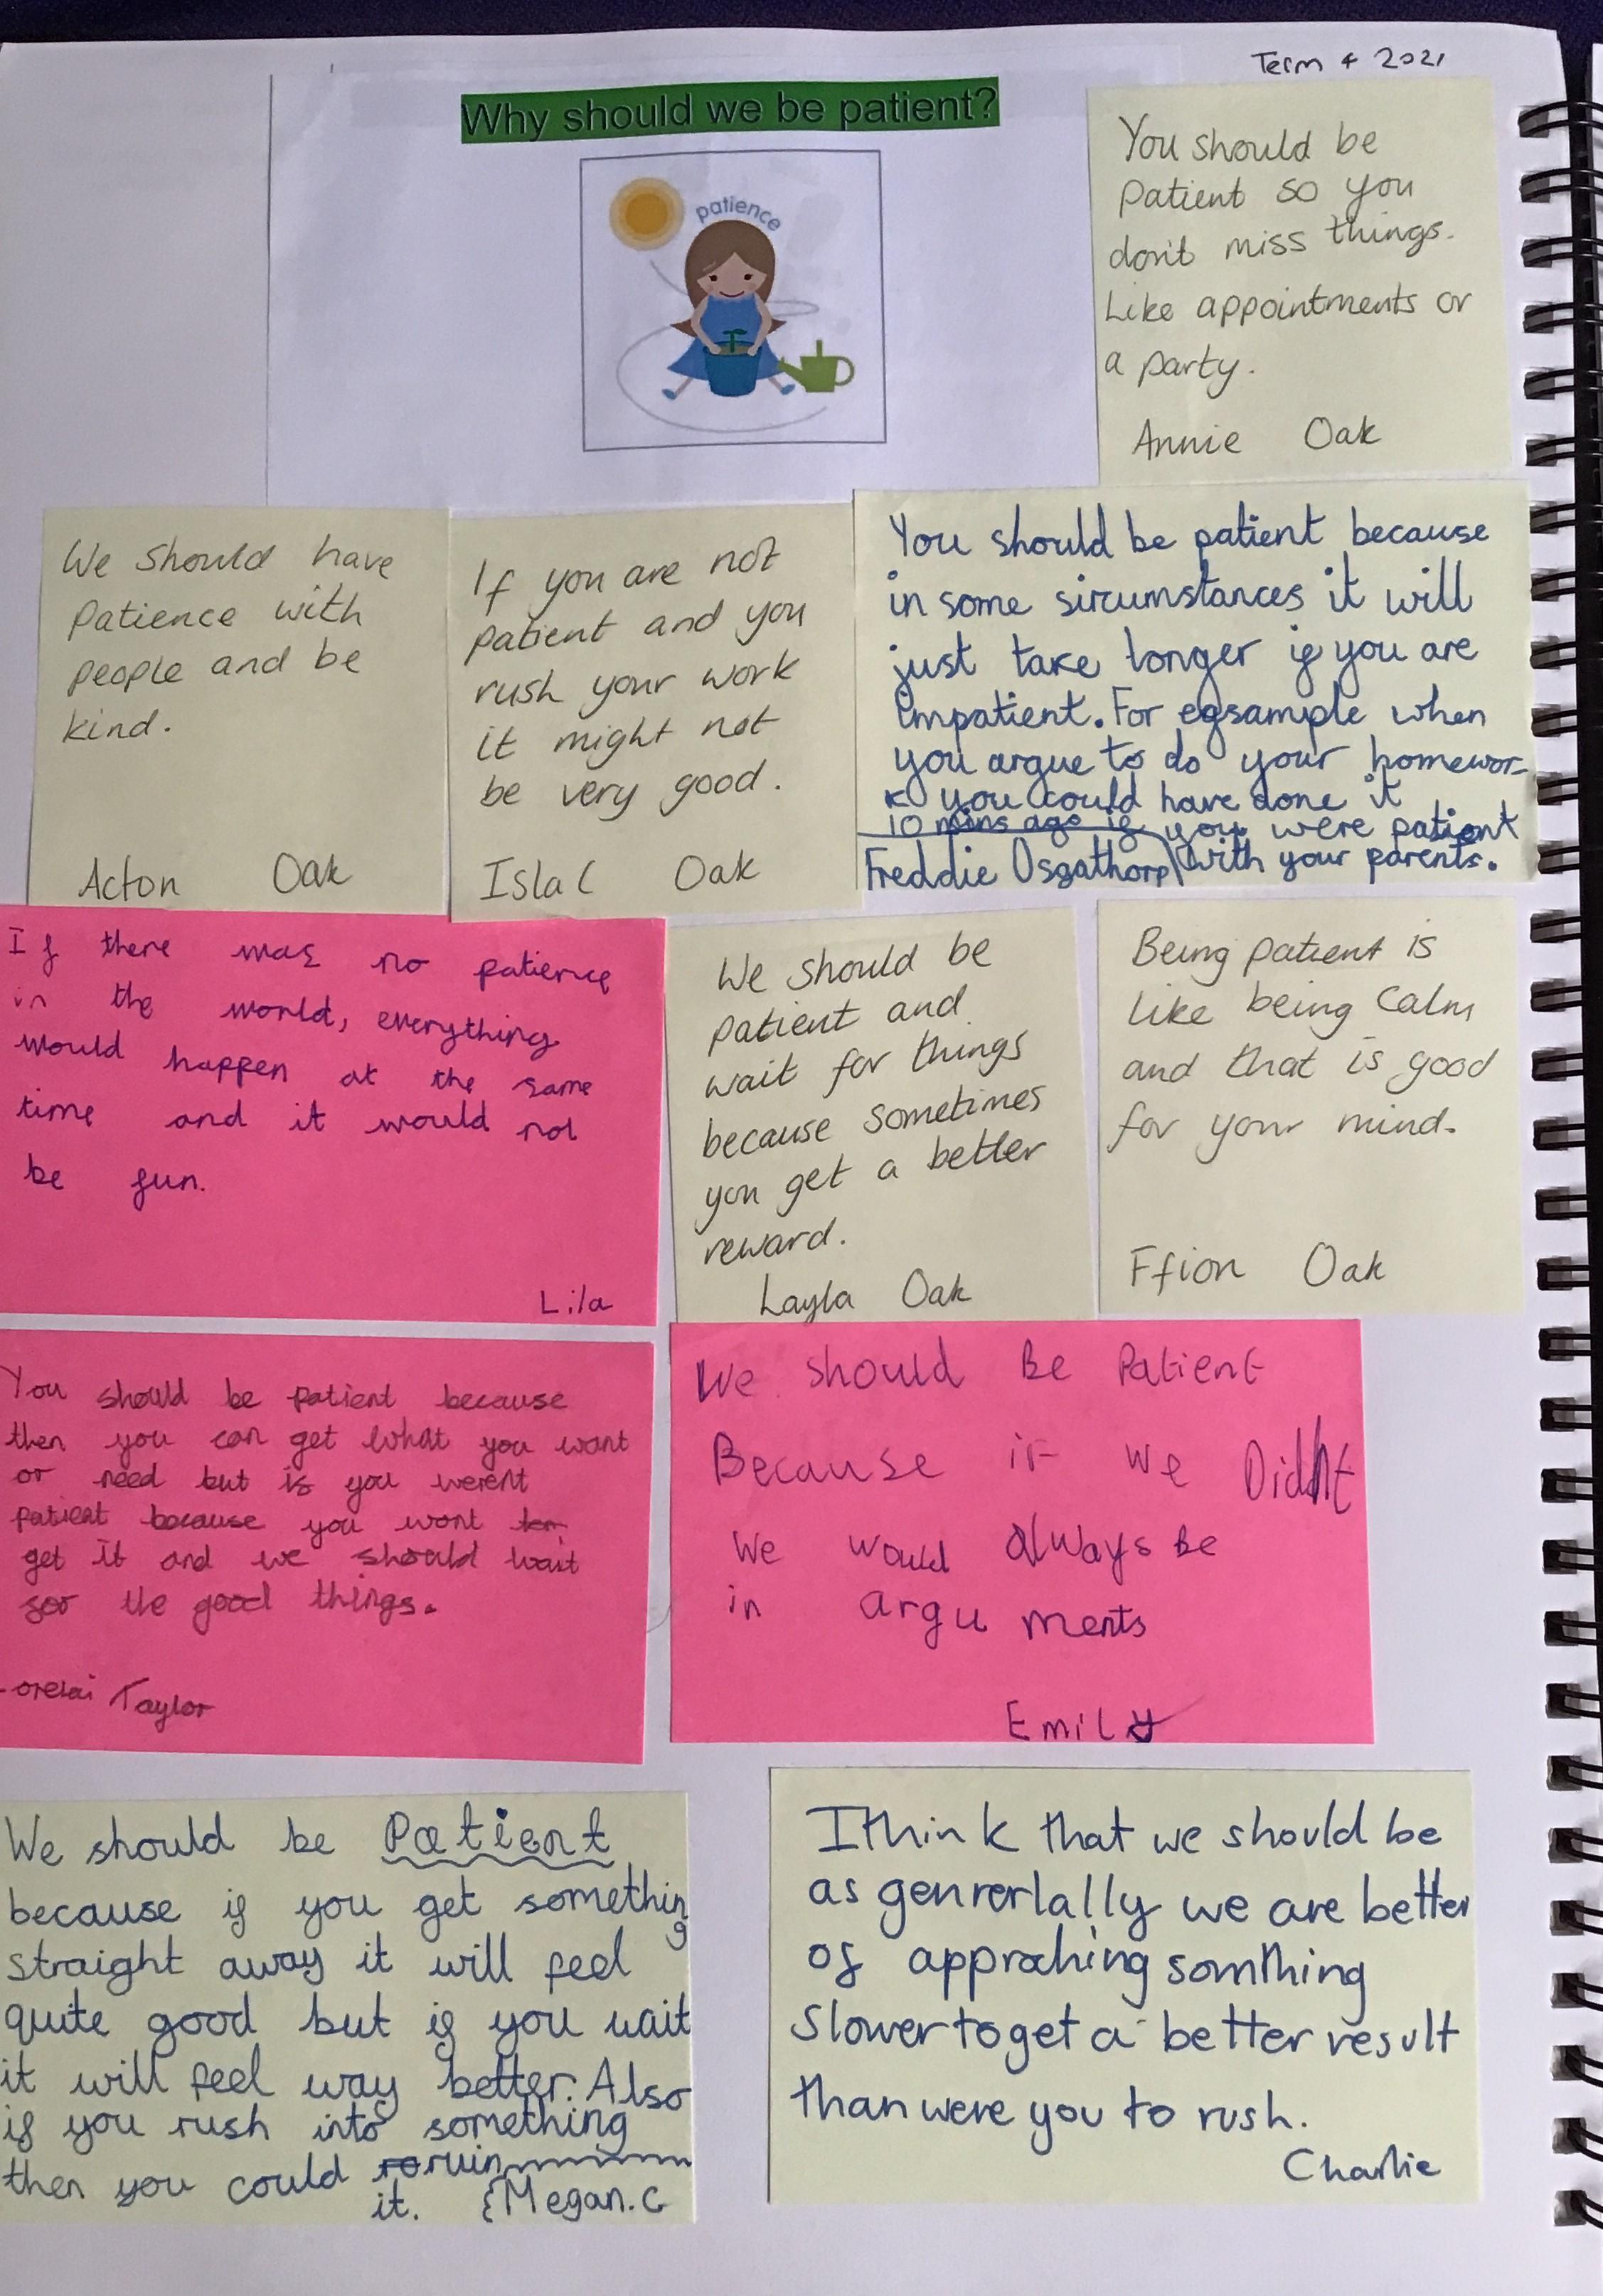 Term 4 2021
Why should we be patient?
patience
You should be
patient so you
don't miss things.
Like appointments or
a party.
Annie Oak
We should have
patience with
people and be
kind.
Acton Oak
If you are not
patient and you
rush your work
it might not
be very good.
Isla C Oak
You should be patient because
in some sircumstances it will
just take longer if you are
impatient. For egsample when
you argue to do your homewor-
k you could have done it
10 mins ago if you were patient
with your parents.
Freddie Osgathorp
If there was no patience
in the world, everything
would happen at the same
time and it would not
be fun.
Lila
We should be
patient and
wait for things
because sometimes
you get a better
reward.
Layla Oak
Being patient is
like being calm
and that is good
for your mind.
Ffion Oak
You should be patient because
then you can get what you want
or need but if you werent
patient because you wont
get it and we should wait
for the good things.
orelai Taylor
We should Be Patient
Because if we Didnt
We would always Be
in argu ments
Emily
We should be Patient
because if you get something
straight away it will feel
quite good but if you wait
it will feel way better. Also
if you rush into something
then you could ruin
it. {Megan.C
I think that we should be
as genrerlally we are better
of approching somthing
slower to get a better result
than were you to rush.
Charlie